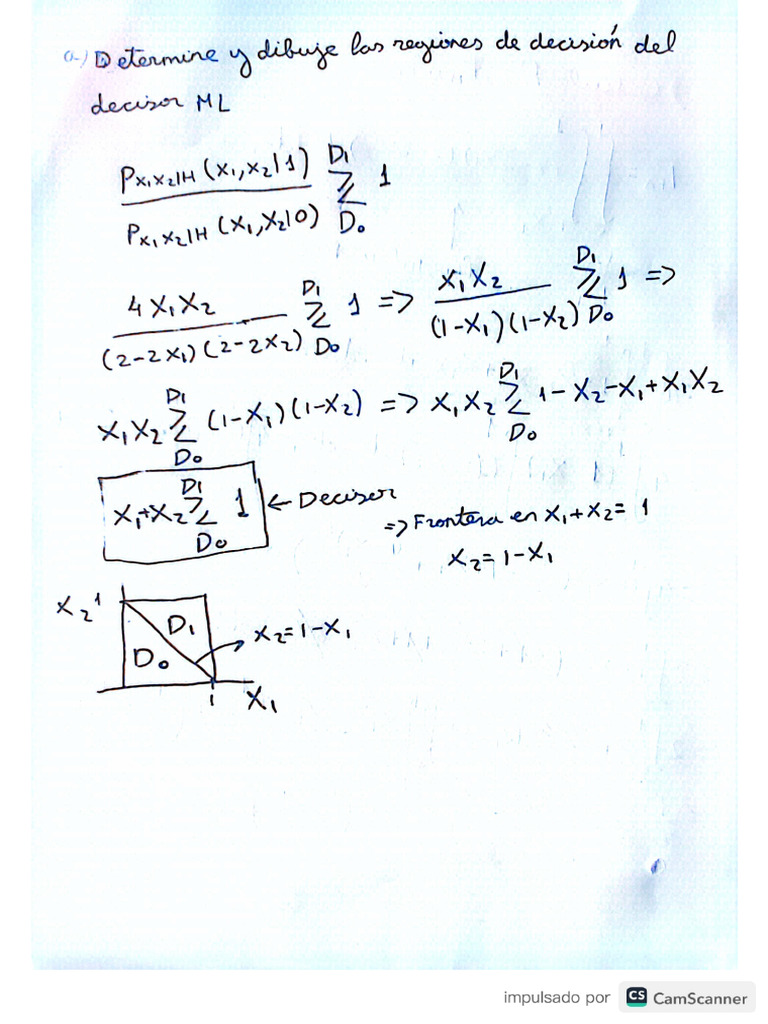 a-) Determine y dibuje las regiones de decisión del
decisor ML
P_{X₁X₂|H}(X₁,X₂|1) / P_{X₁X₂|H}(X₁,X₂|0) ≷ D₁ D₀ 1
4X₁X₂ / (2-2X₁)(2-2X₂) ≷ D₁ D₀ 1 => X₁X₂ / (1-X₁)(1-X₂) ≷ D₁ D₀ 1 =>
X₁X₂ ≷ D₁ D₀ (1-X₁)(1-X₂) => X₁X₂ ≷ D₁ D₀ 1-X₂-X₁+X₁X₂
X₁+X₂ ≷ D₁ D₀ 1 ← Decisor
=> Frontera en X₁+X₂= 1
X₂=1-X₁
X₂ 1
D₁
X₂=1-X₁
D₀
1 X₁
impulsado por CS CamScanner